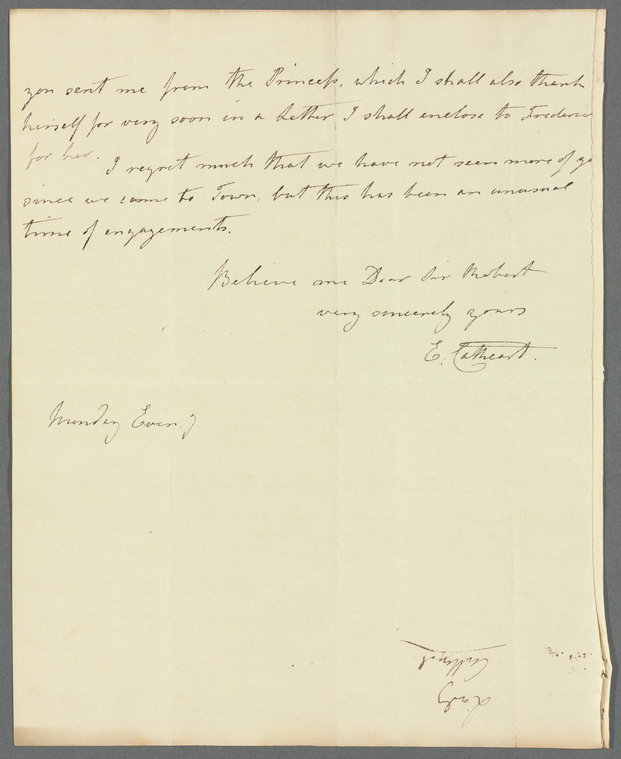 you sent me from the Princess, which I shall also thank
herself for very soon in a Letter I shall enclose to Frederic
for her.
I regret much that we have not seen more of yo
since we came to Town, but this has been an unusual
time of engagements.
Believe me Dear Sir Robert
very sincerely yours
E. Cathcart.
Monday Eveng
Lady
Cathcart